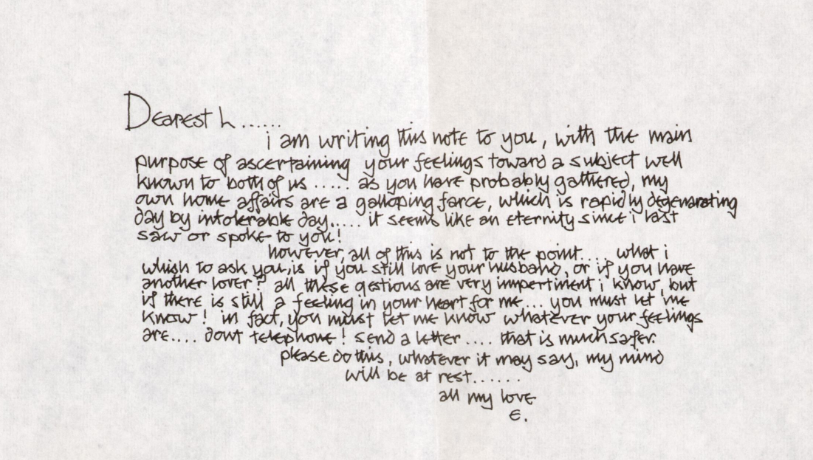 Dearest L ......
i am writing this note to you, with the main
purpose of ascertaining your feelings toward a subject well
known to both of us ..... as you have probably gathered, my
own home affairs are a galloping farce, which is rapidly degenarating
day by intolerable day..... it seems like an eternity since i last
saw or spoke to you!
however, all of this is not to the point.... what i
whish to ask you, is if you still love your husband, or if you have
another lover? all these qestions are very impertinent i know, but
if there is still a feeling in your heart for me... you must let me
know! in fact, you must let me know whatever your feelings
are.... dont telephone! send a letter .... that is much safer.
please do this, whatever it may say, my mind
will be at rest......
all my love
E.